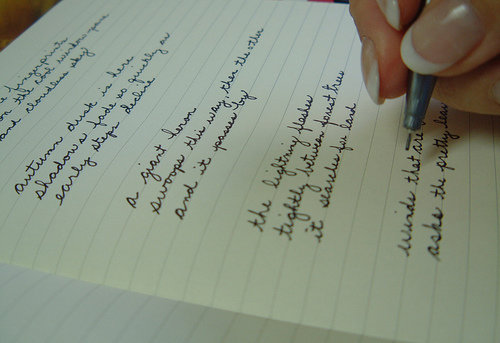 fingerprints
cold window pane
and cloudless sky
autumn dusk is here
shadows fade quickly as
early steps
a giant lemon
swoops this way, then the other
and it passes by
the lightning flashes
tightly between forest trees
it searches for land
winds that are
asks the pretty